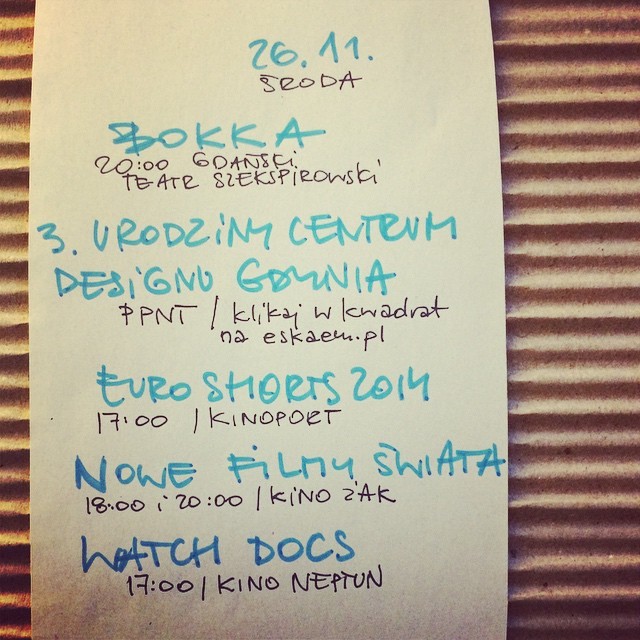 26.11.
ŚRODA
BOKKA
20:00 GDAŃSKI
TEATR SZEKSPIROWSKI
3. URODZINY CENTRUM
DESIGNU GDYNIA
PPNT / klikaj w kwadrat
na eskaem.pl
EURO SHORTS 2014
17:00 / KINOPORT
NOWE FILMY ŚWIATA
18:00 i 20:00 / KINO ŻAK
WATCH DOCS
17:00 / KINO NEPTUN